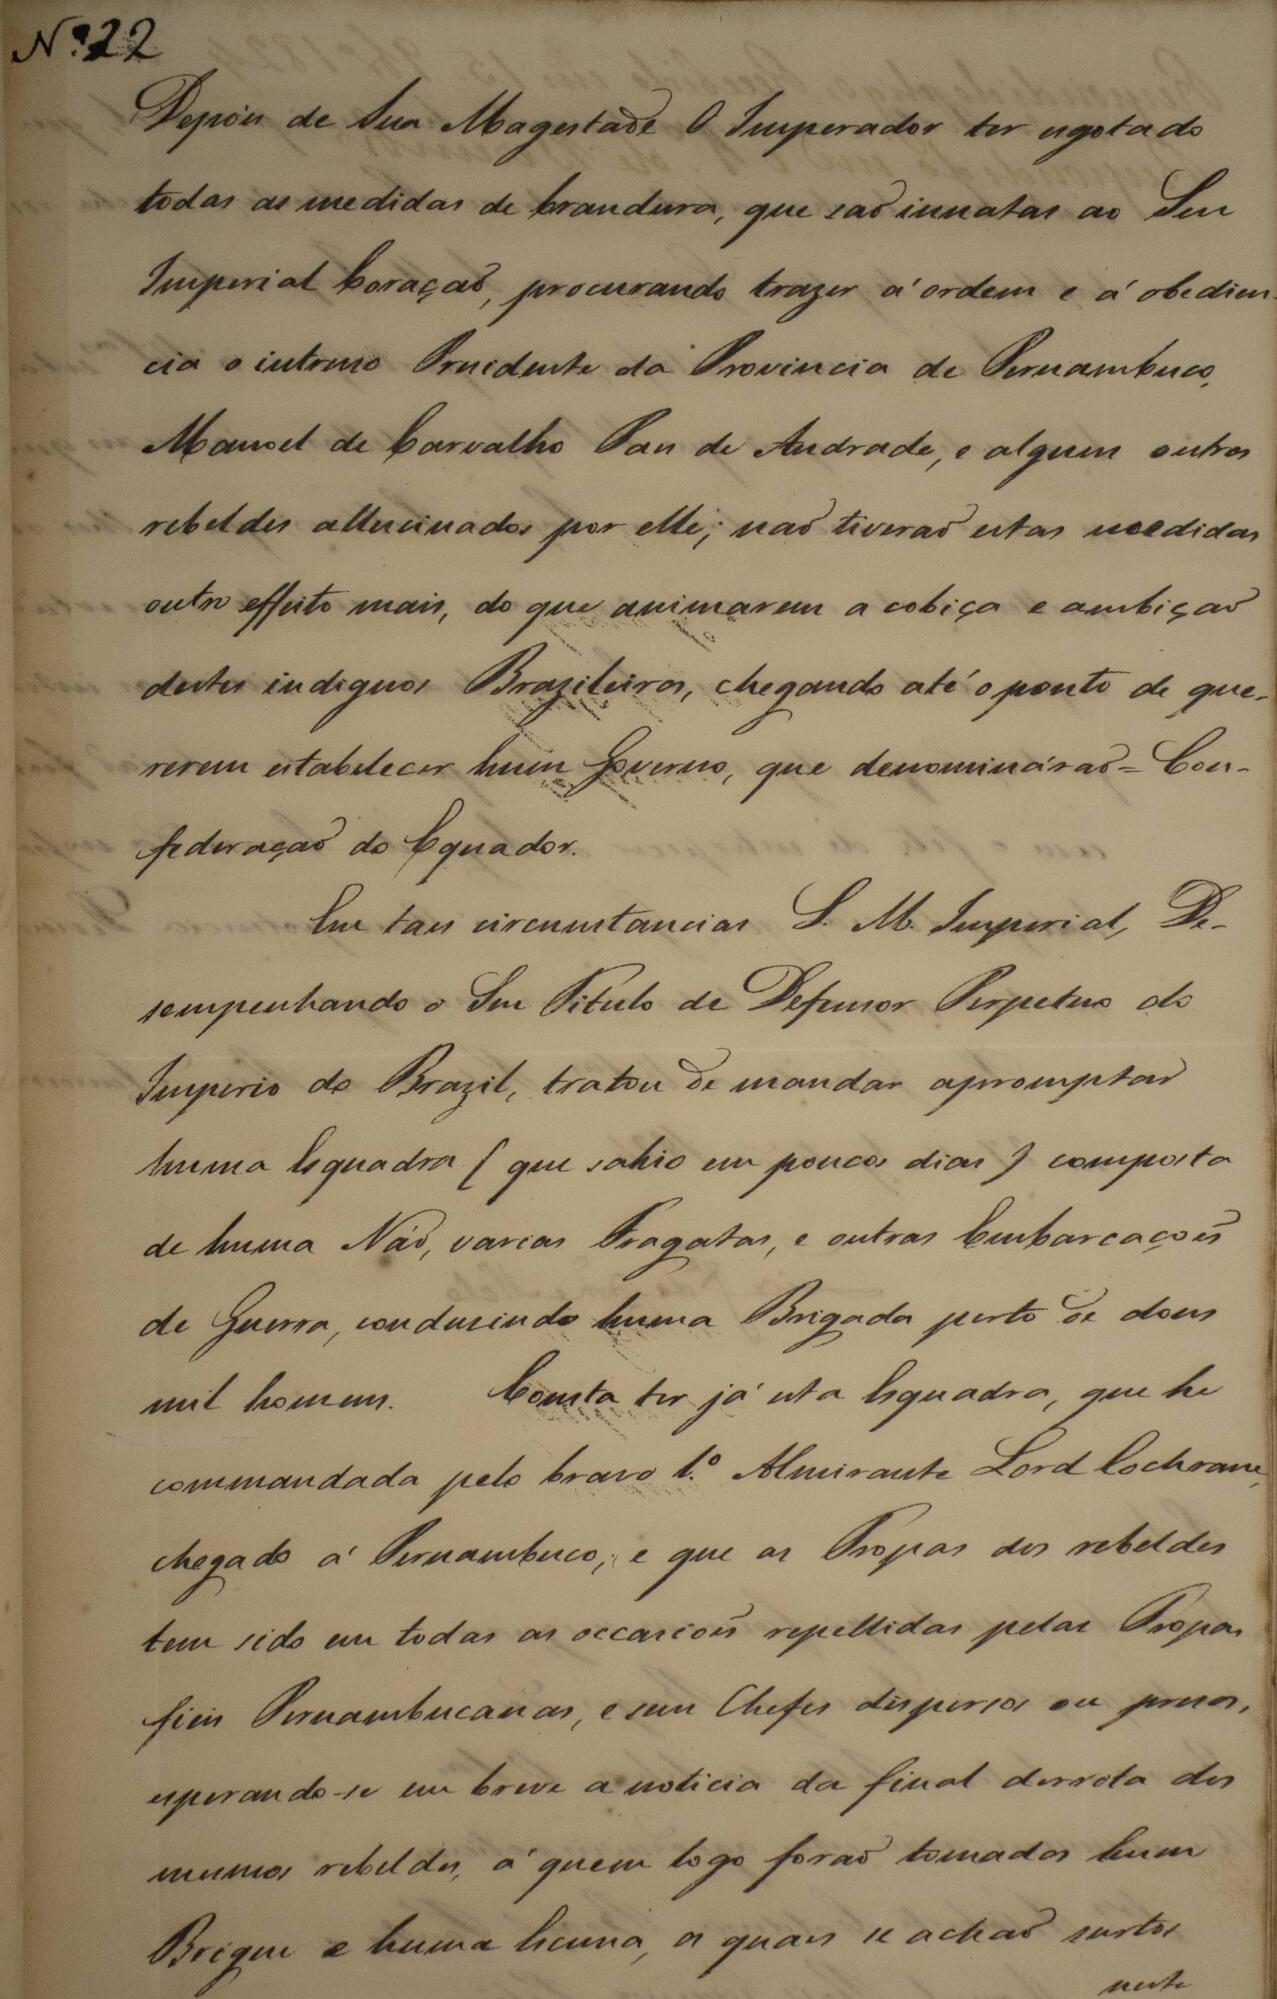 Nº 22
Depois de Sua Magestade O Imperador ter esgotado
todas as medidas de brandura, que saõ innatas ao Seu
Imperial Coraçaõ, procurando trazer á ordem e á obedien-
cia o intruso Presidente da Provincia de Pernambuco,
Manoel de Carvalho Paes de Andrade, e alguns outros
rebeldes allucinados por elle; naõ tiveraõ estas medidas
outro effeito mais, do que animarem a cobiça e ambiçaõ
destes indignos Brazileiros, chegando até o ponto de que-
rerem estabelecer hum Governo, que denomináraõ = Con-
federaçaõ do Equador.
Em taes circumstancias S. M. Imperial, De-
sempenhando o Seu Titulo de Defensor Perpetuo do
Imperio do Brazil, tratou de mandar apromptar
huma Esquadra (que sahio em poucos dias) composta
de huma Náo, varias Fragatas, e outras Embarcaçoẽs
de Guerra, condusindo huma Brigada perto de dous
mil homens. Consta ter já esta Esquadra, que he
commandada pelo bravo 1.º Almirante Lord Cochrane,
chegado á Pernambuco, e que as Tropas dos rebeldes
tem sido em todas as occasioẽs repellidas pelas Tropas
fieis Pernambucanas, e seus Chefes dispersos ou presos,
esperando-se em breve a noticia da final derrota dos
mesmos rebeldes, á quem logo foraõ tomados hum
Brigue e huma Escuna, os quaes se achaõ surtos
neste